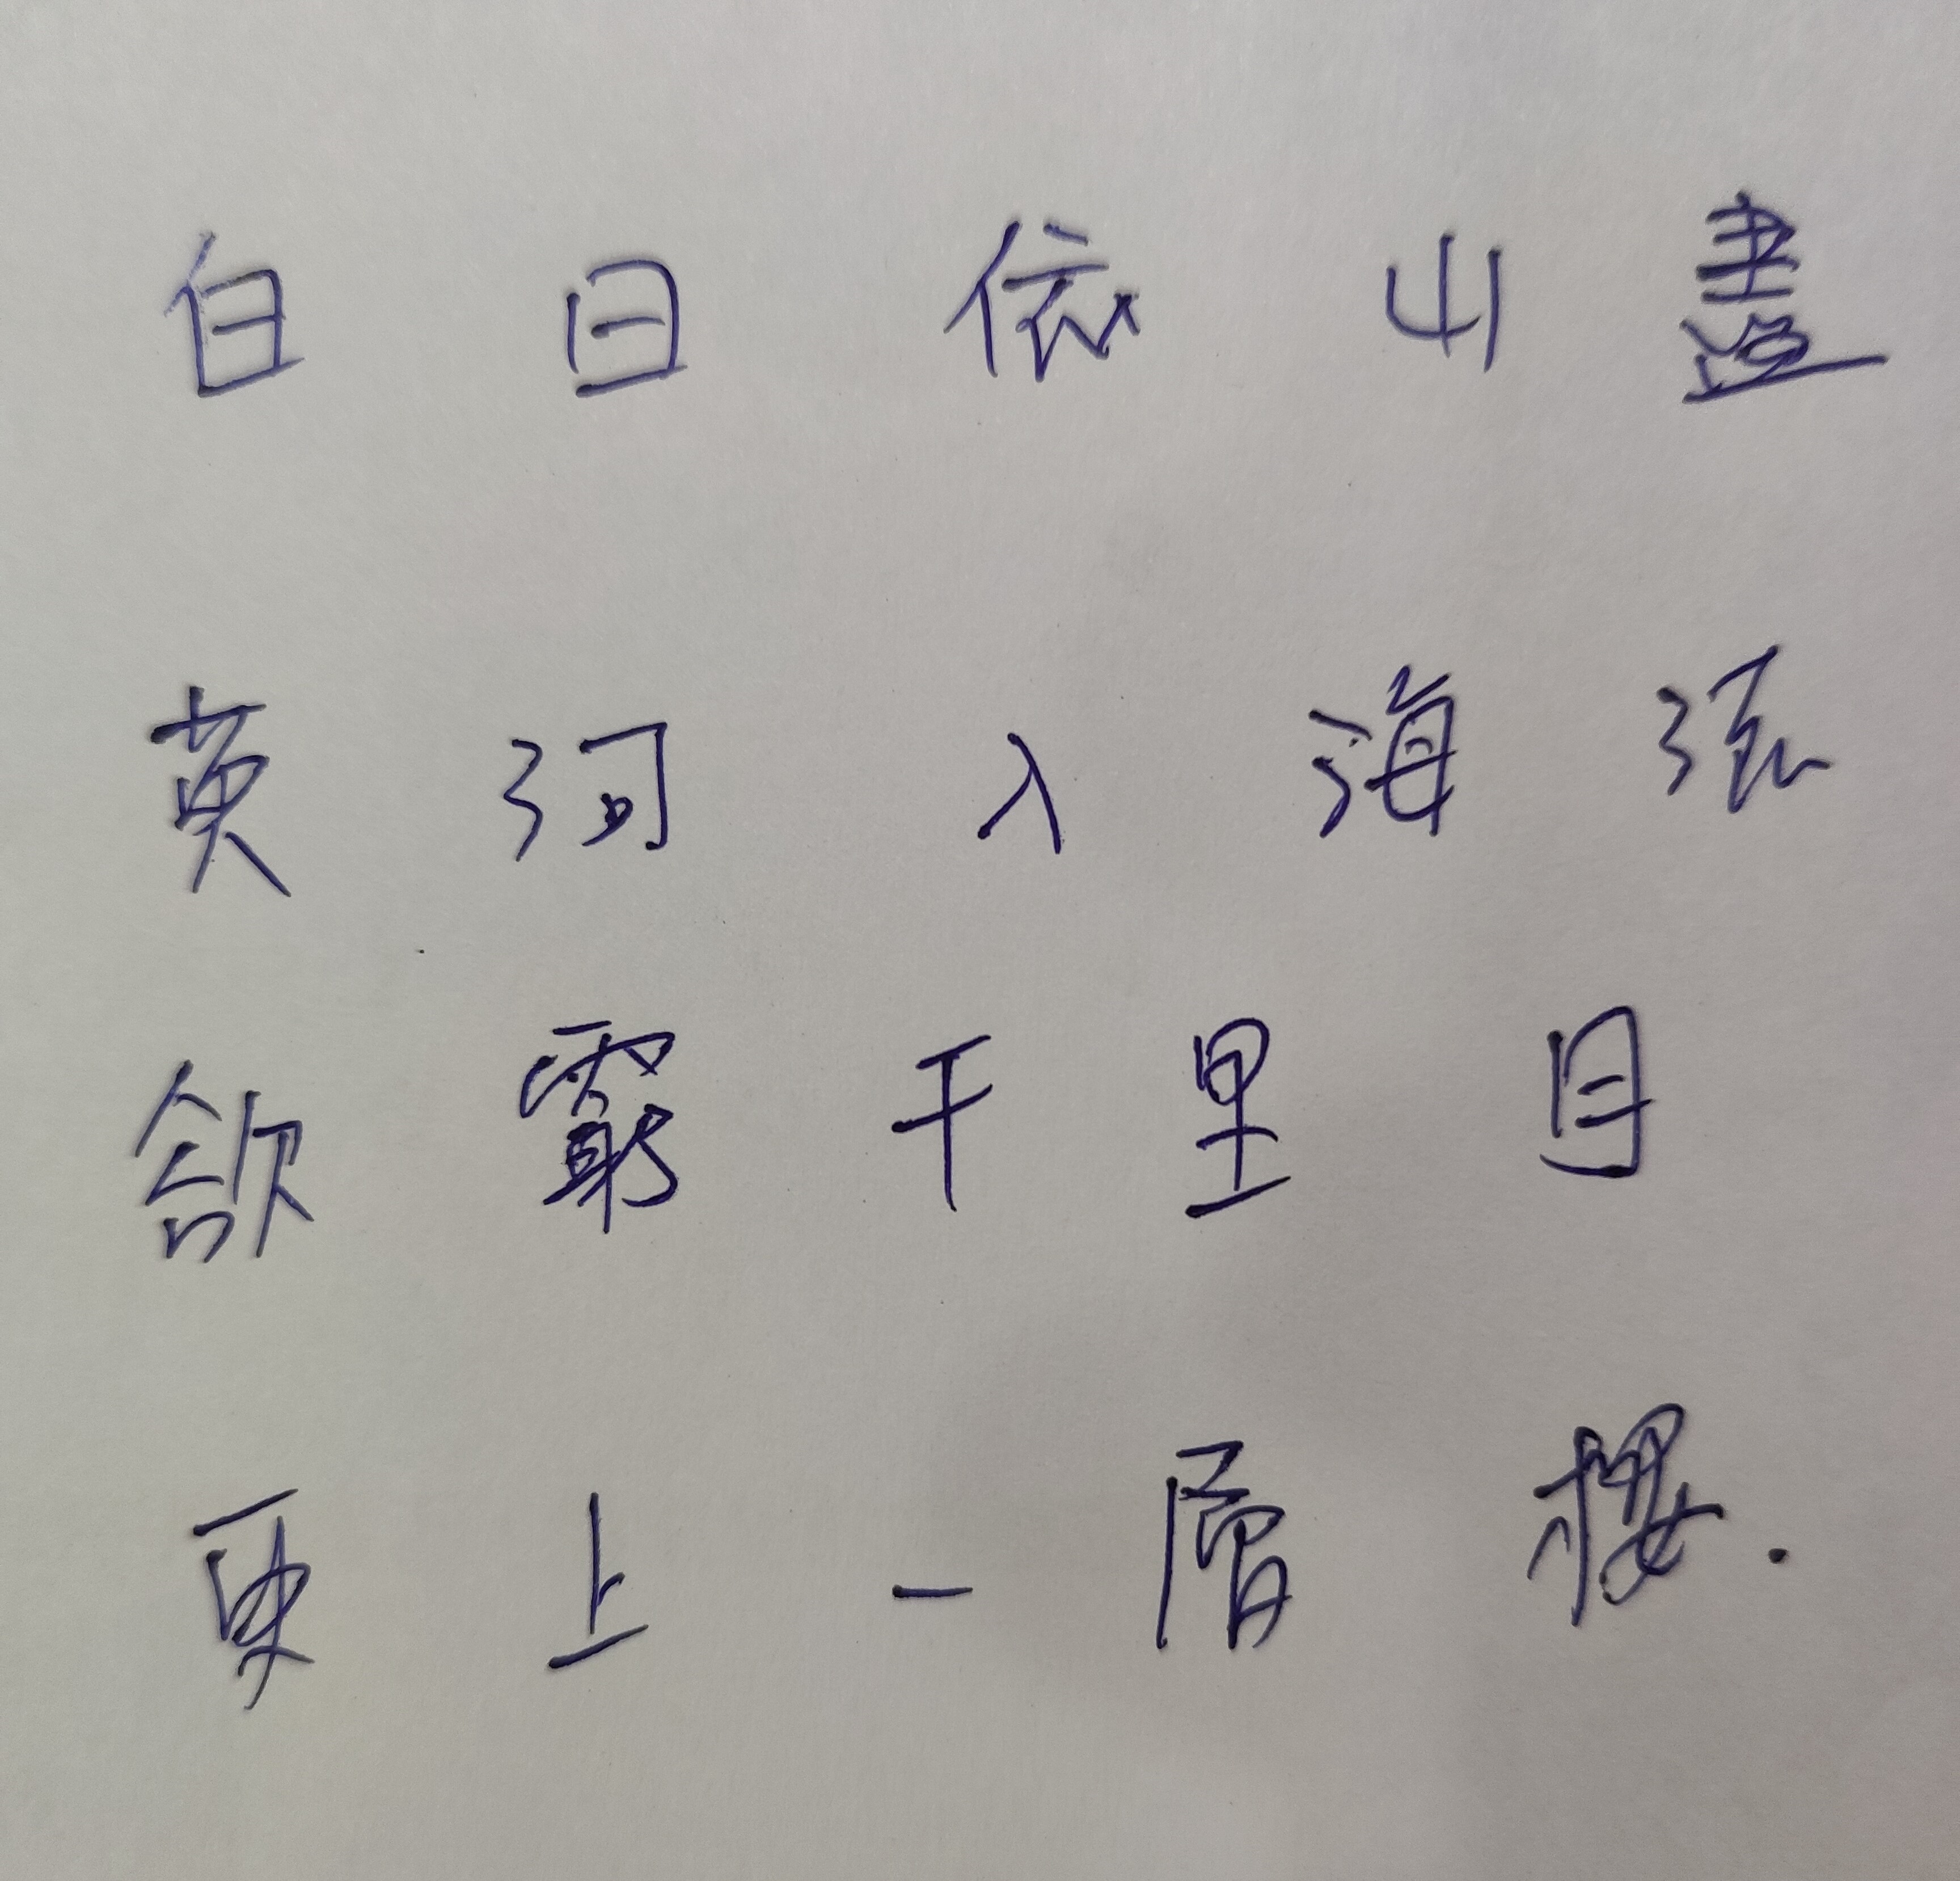 白日依山盡
黃河入海流
欲窮千里目
更上一層樓.